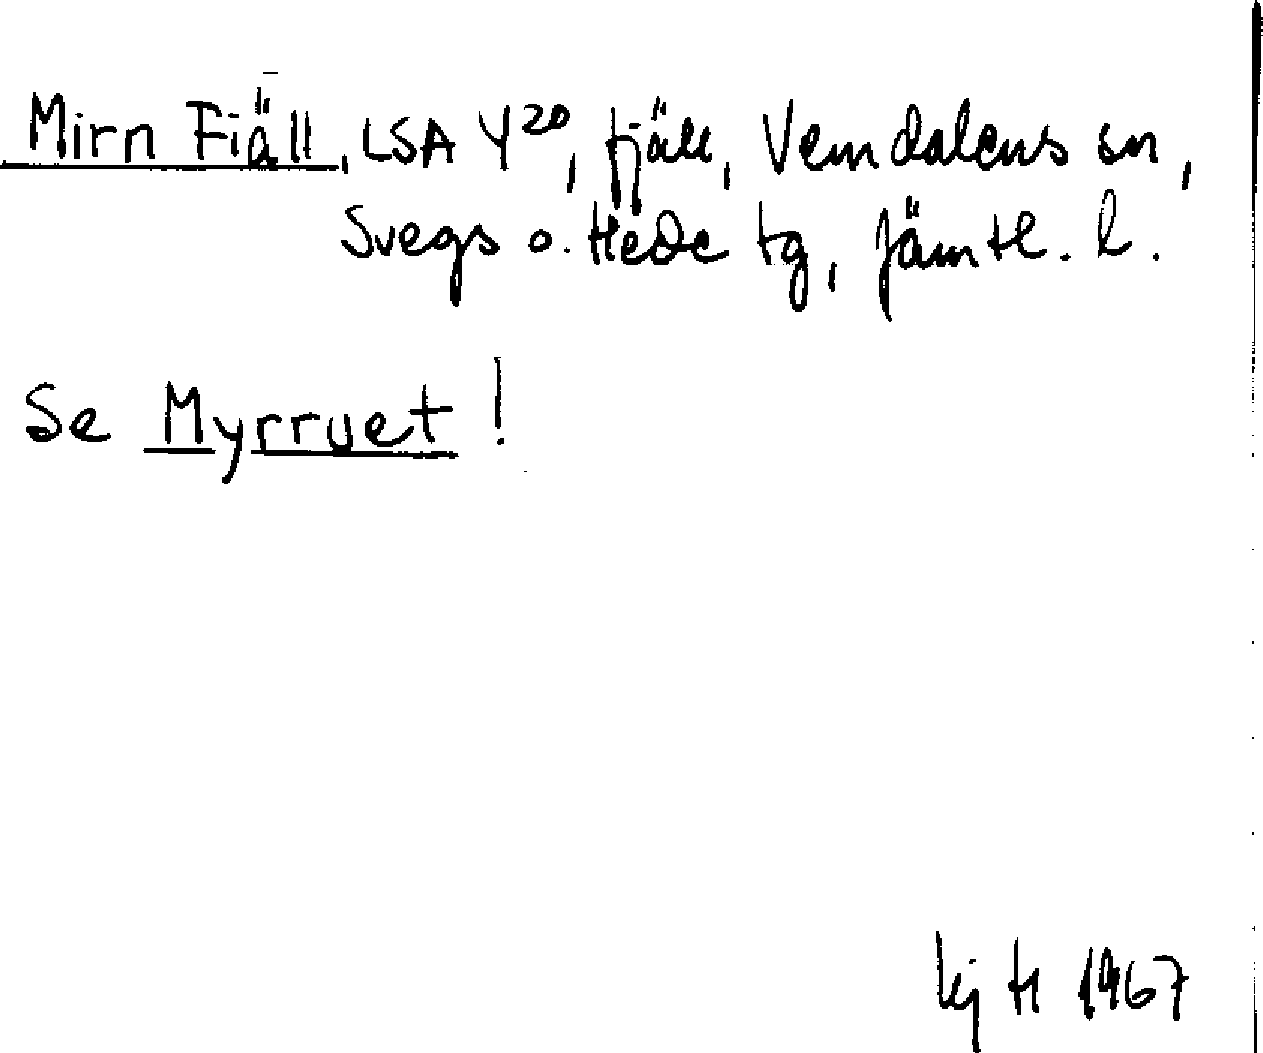 Mirn Fiäll, LSA Y²⁰, fjäll, Vemdalens sn,
Svegs o. Hede tg, Jämtl. l.
Se Myrruet!
1967